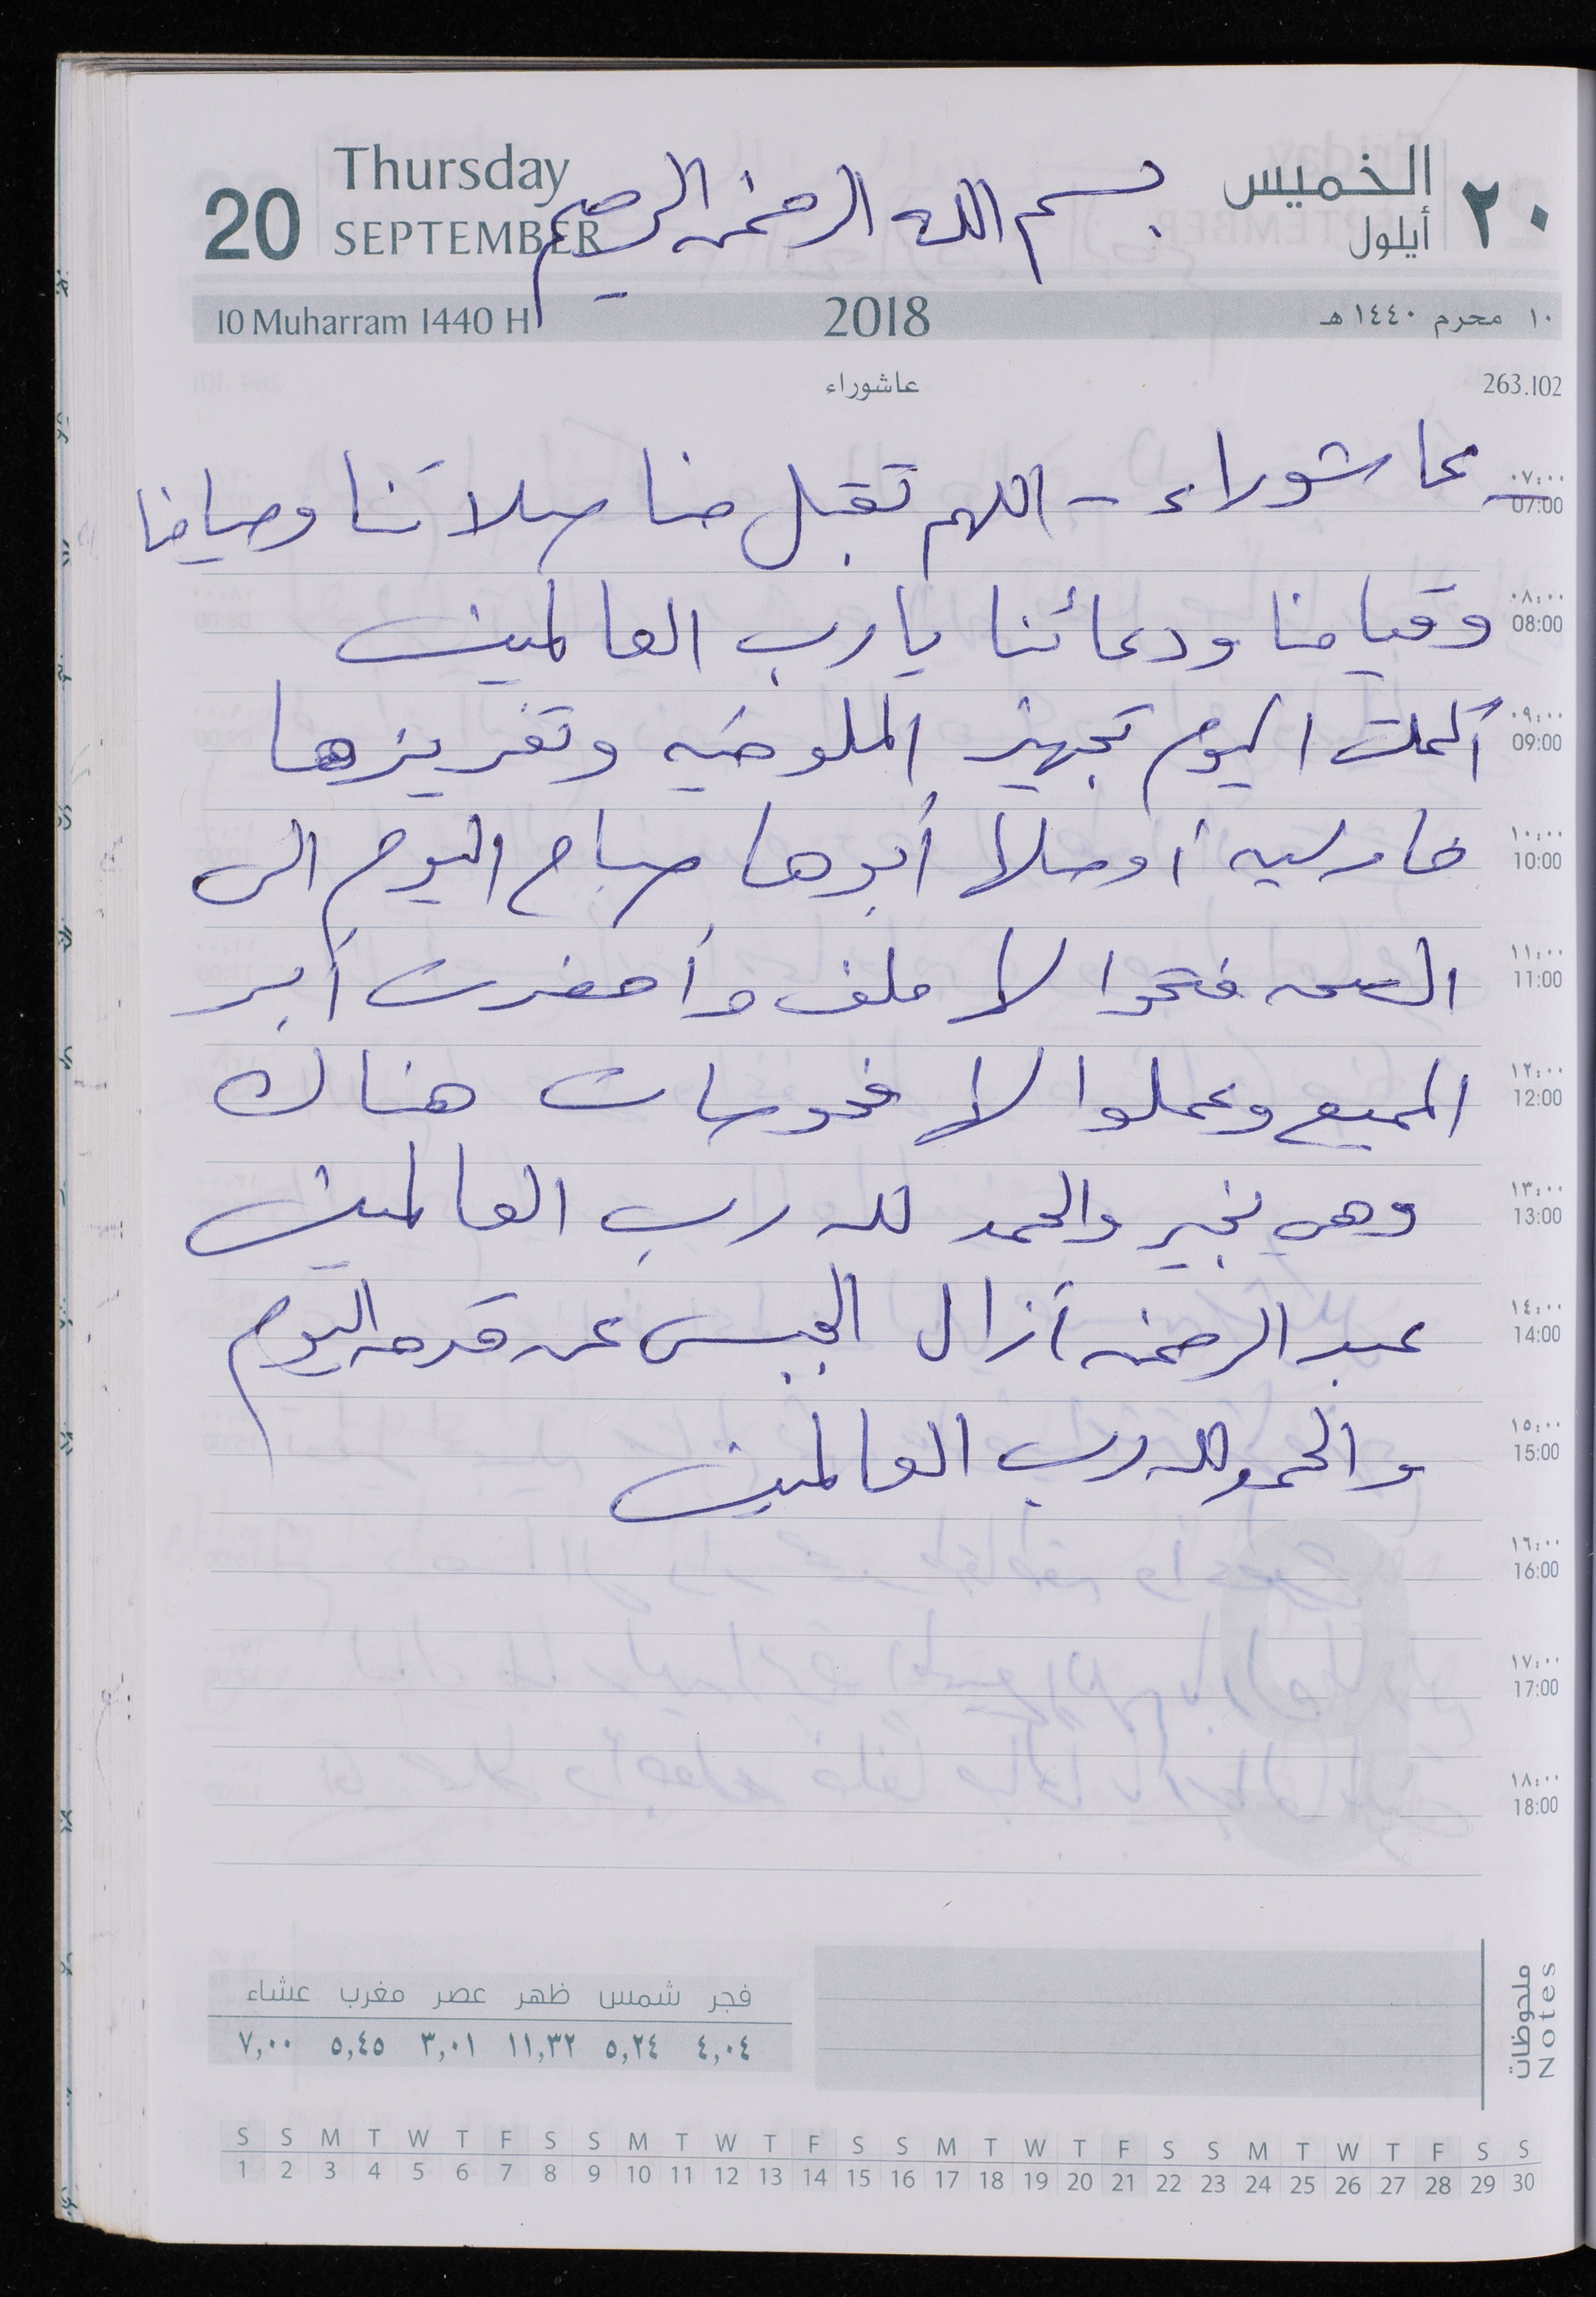 20
Thursday
SEPTEMBER
بسم الله الرحمن الرحيم
الخميس
أيلول
٢٠
10 Muharram 1440 H
2018
١٠ محرم ١٤٤٠ هـ
عاشوراء
263.102
عاشوراء - اللهم تقبل منا صلاتنا وصيامنا
٠٧:٠٠
07:00
وقيامنا ودعائنا يارب العالمين
٠٨:٠٠
08:00
أكملت اليوم تجهيز الملوخيه وتفريزها
٠٩:٠٠
09:00
أوصلها أبوها صباح اليوم الى
١٠:٠٠
10:00
فتحوا لها ملف وأحضرت أبر
١١:٠٠
11:00
المميع وعملوا لها فحوصات هناك
١٢:٠٠
12:00
وهي بخير والحمد لله رب العالمين
١٣:٠٠
13:00
عبد الرحمن أزال الجبس عن قدمه اليوم
١٤:٠٠
14:00
والحمد لله رب العالمين
١٥:٠٠
15:00
١٦:٠٠
16:00
١٧:٠٠
17:00
١٨:٠٠
18:00
فجر شمس ظهر عصر مغرب عشاء
٤,٠٤ ٥,٢٤ ١١,٣٢ ٣,٠١ ٥,٤٥ ٧,٠٠
ملحوظات
Notes
S S M T W T F S S M T W T F S S M T W T F S S M T W T F S S
1 2 3 4 5 6 7 8 9 10 11 12 13 14 15 16 17 18 19 20 21 22 23 24 25 26 27 28 29 30